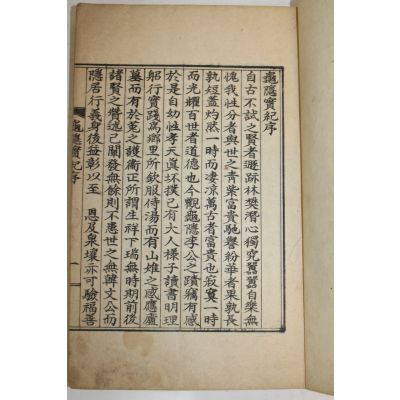 龜隱實紀序
自古不試之賢者遯跡林樊潛心獨究囂囂自樂無
愧我性分者與世之青紫富貴馳譽紛華者果孰長
孰短蓋灼然一時而凄凉萬古者富貴也寂寞一時
而光耀百世者道德也今觀龜隱李公之蹟竊有感
於是自幼性孝天眞坯撲已有大人㨾子讀書明理
躬行實踐爲鄉里所欽服侍湯而有山雉之感應廬
墓而有於菟之護衛正所謂生祥下瑞無時期前後
諸賢之賛述已闡發無餘則不患世之無韓文公而
隱居行義身後益彰以至 恩及泉壤亦可驗福善
龜隱實紀序 一